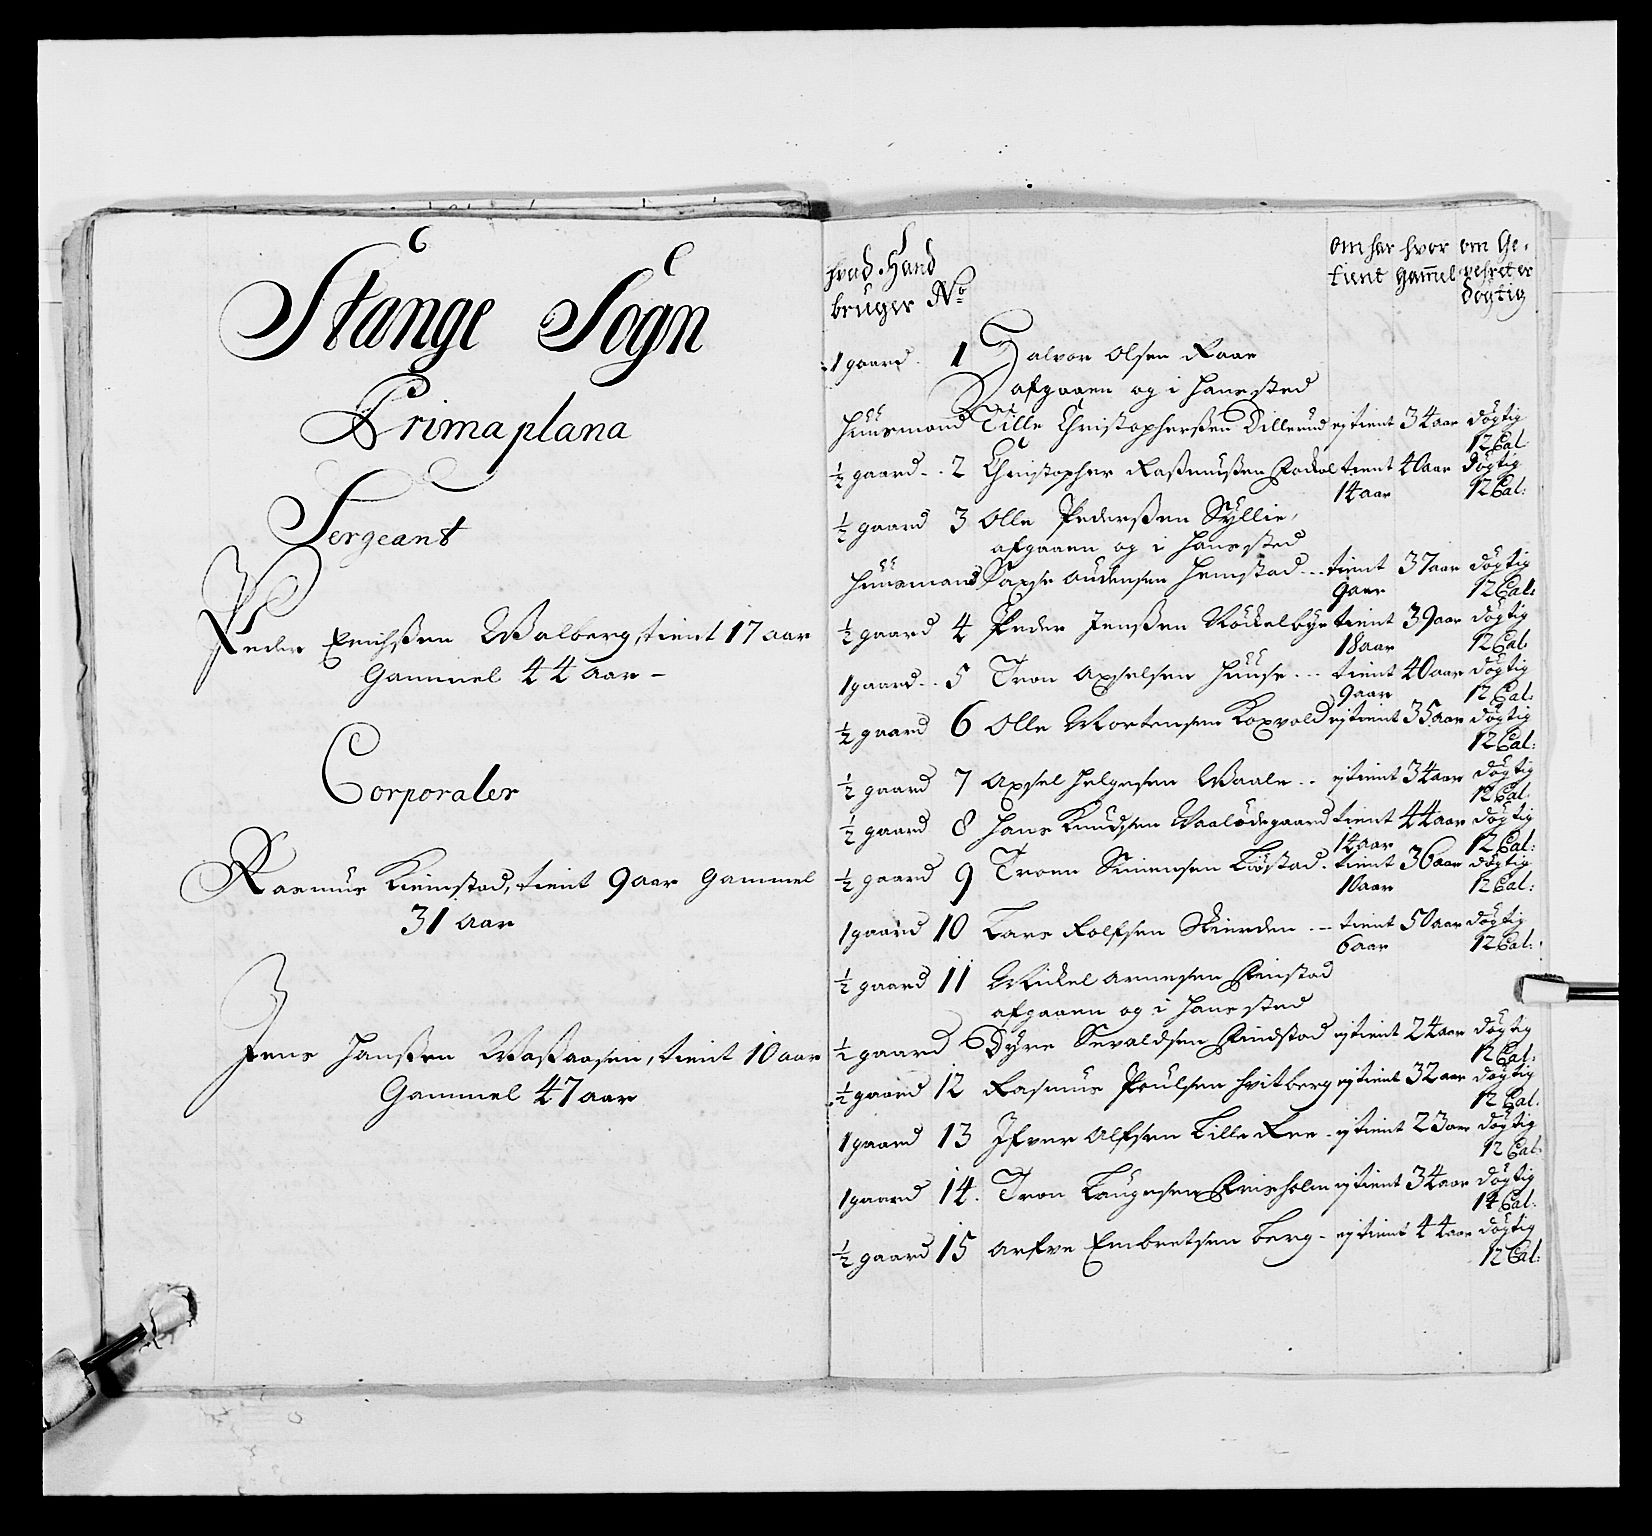 Stange Sogn
Primaplana
Sergeant
Peder Erichsßen Walberg, tient 17 aar
Gammel 44 aar -
Corporaler
Rasmus Kiemstad, tient 9 aar Gammel
31 aar
Jens Hanßen tient 10 aar
Gammel 47 aar
hvad Hand bruger No om har tient hvor Gamel om Gevehret er døgtig
1 gaard 1 Halvor Olsen Raae
afgaaen og i Hans sted
Huusmand Tille Christophersßen Dillerud ej tient 34 aar døgtig
12 Cal:
½ gaard 2 Christopher Rasmusßen tient 40 aar døgtig
14 aar 12 Cal:
½ gaard 3 Olle Pedersßen Syllie,
afgaaen og i Hans sted
Huusmand Axse Audensen Hemstad tient 37 aar døgtig
9 aar 12 Cal:
½ gaard 4 Peder Jensßen Røckelbye tient 39 aar døgtig
18 aar 12 Cal:
1 gaard 5 Tron Axselsen Huuse tient 40 aar døgtig
9 aar 12 Cal:
½ gaard 6 Olle Mortensen ej tient 35 aar døgtig
12 Cal:
½ gaard 7 Axsel Helgesen Waale ej tient 34 aar døgtig
12 Cal:
½ gaard 8 Hans Knudsen Waalødegaard tient 44 aar døgtig
14 aar 12 Cal:
½ gaard 9 Troen Simensen tient 36 aar døgtig
10 aar 12 Cal:
1 gaard 10 Lars Rolfsen Skierden tient 50 aar døgtig
6 aar 12 Cal:
½ gaard 11 Mickel Arnesen Rinstad
afgaaen og i Hans sted
½ gaard Dyre Sevaldsen Rindstad ej tient 24 aar døgtig
12 Cal:
½ gaard 12 Rasmus Poulsen Hvitberg ej tient 32 aar døgtig
12 Cal:
1 gaard 13 Ifver Olfsen Lille Ree ej tient 23 aar døgtig
12 Cal:
1 gaard 14. Tron Laugesen ej tient 34 aar døgtig
14 Cal:
½ gaard 15 Arfve Embretsen Berg - ej tient 44 aar døgtig
12 Cal: